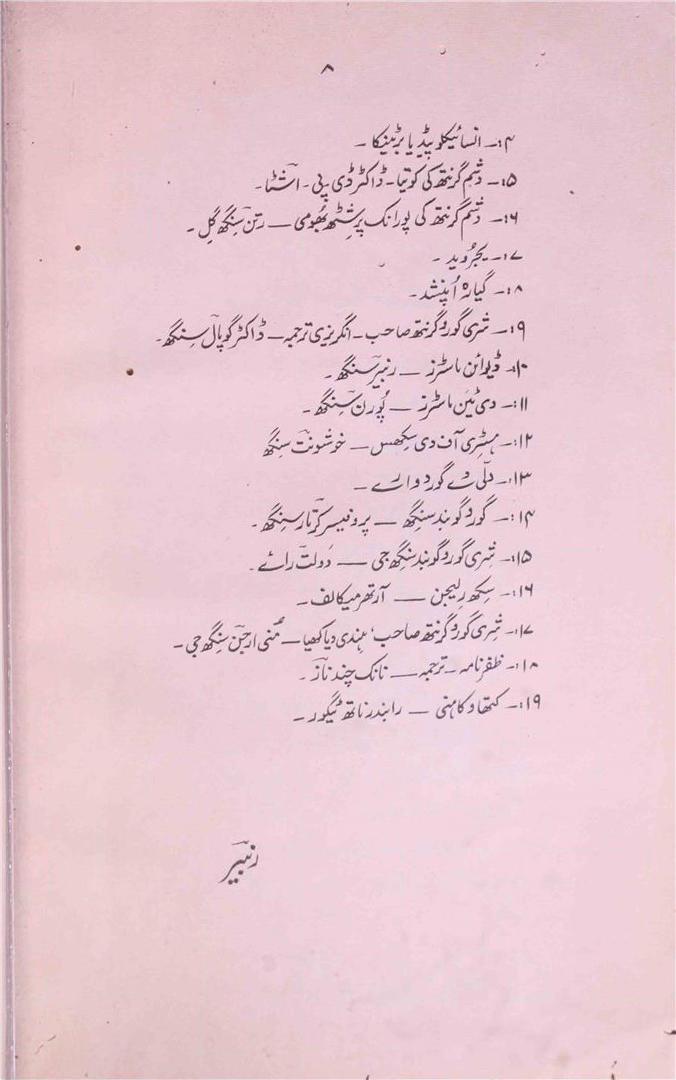 ۸
۴:۔ انسائیکلوپیڈیا برٹینیکا۔
۵:۔ دشم گرنتھ کی کویتا۔ ڈاکٹر ڈی۔ پی۔ اشٹا۔
۶:۔ دشم گرنتھ کی پورانک پرشٹھ بھومی — رتن سنگھ گل۔
۷:۔ یجر وید۔
۸:۔ گیارہ اُپنشد۔
۹:۔ شری گورو گرنتھ صاحب۔ انگریزی ترجمہ — ڈاکٹر گوپال سنگھ۔
۱۰:۔ ڈیوائن ماسٹرز — رنبیر سنگھ۔
۱۱:۔ دی ٹین ماسٹرز — پُورن سنگھ۔
۱۲:۔ ہسٹری آف دی سکھس — خوشونت سنگھ
۱۳:۔ دلّی دے گوردوارے۔
۱۴:۔ گورو گوبند سنگھ — پروفیسر کرتار سنگھ۔
۱۵:۔ شری گورو گوبند سنگھ جی — دَولت رائے۔
۱۶:۔ سکھ رلیجن — آرتھر میکالف۔
۱۷:۔ شری گورو گرنتھ صاحب، ہندی دیاکھیا — مُنی ارجن سنگھ جی۔
۱۸:۔ ظفرنامہ۔ ترجمہ — نانک چند ناز۔
۱۹:۔ کتھا و کاہنی — رابندر ناتھ ٹیگور۔
رنبیر